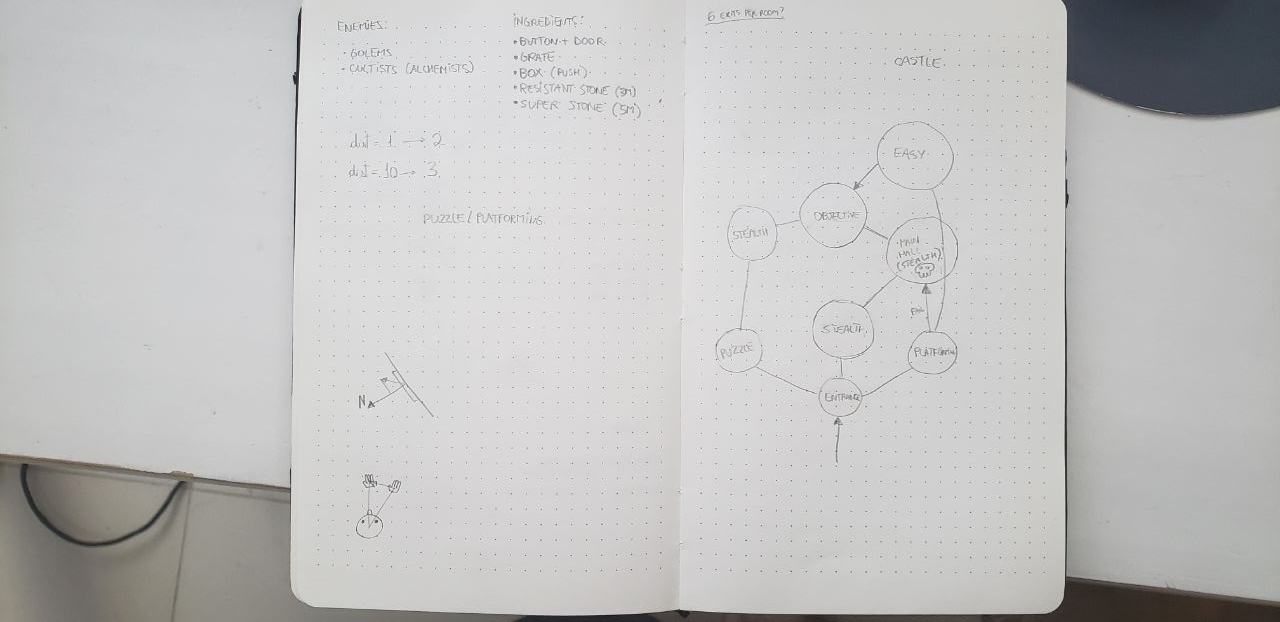 ENEMIES:
· GOLEMS
· CULTISTS (ALCHEMISTS)
INGREDIENTS:
• BUTTON + DOOR
• GRATE
• BOX (PUSH)
• RESISTANT STONE (3M)
• SUPER STONE (5M)
dist = 1 → 2
dist = 10 → 3
PUZZLE / PLATFORMING
N
6 EXITS PER ROOM?
CASTLE
EASY
OBJECTIVE
STEALTH
MAIN
HALL
(STEALTH)
STEALTH
PUZZLE
PLATFORMING
ENTRANCE